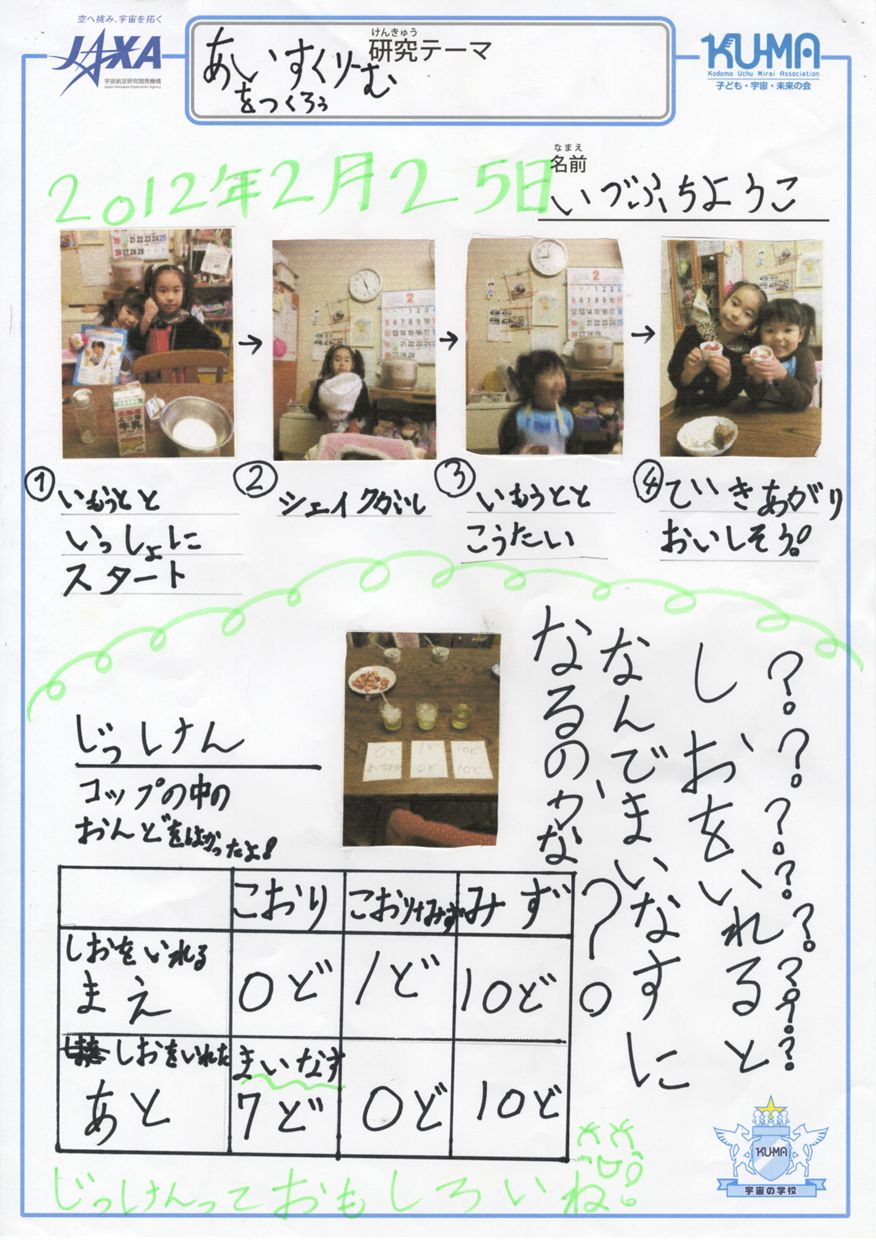 空へ挑み、宇宙を拓く
JAXA
宇宙航空研究開発機構
Japan Aerospace Exploration Agency
けんきゅう
研究テーマ
あいすくりーむ
をつくろう
KU-MA
Kodomo Uchu Mirai Association
子ども・宇宙・未来の会
2012年2月25日
なまえ
名前
いづぶちようこ
→
→
→
①
いもうとと
いっしょに
スタート
②
シェイクかいし
③
いもうとと
こうたい
④
でいきあがり
おいしそう。
じっけん
コップの中の
おんどをはかったよ!
0ど
1ど
10ど
0ど
10ど
?。?。?。?。?。?。?。?。
しおをいれると
なんでまいなすに
なるのかな?。
こおり
こおりみず
みず
しおをいれる
まえ
0ど
1ど
10ど
しおをいれた
あと
まいなす
7ど
0ど
10ど
じっけんっておもしろいね
KU-MA
宇宙の学校